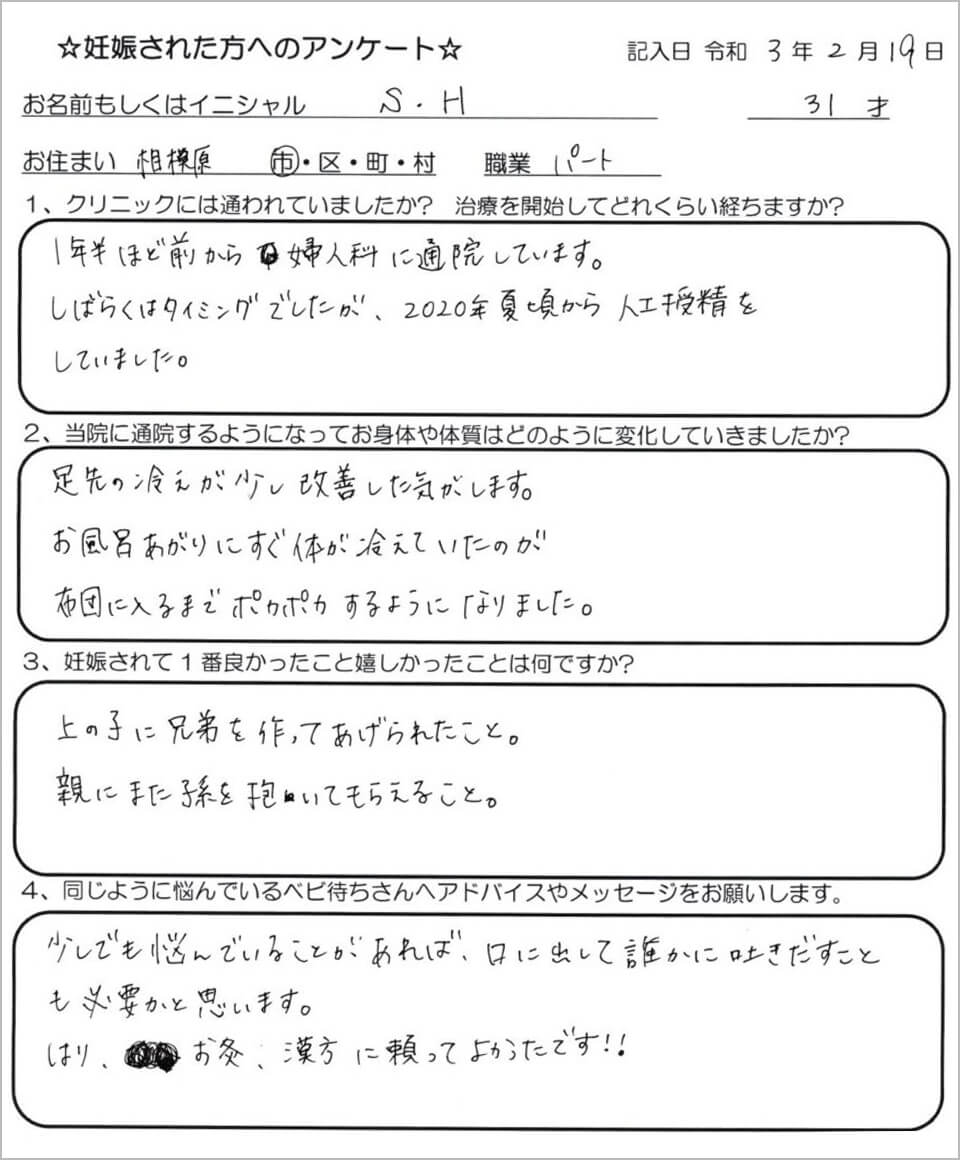 ☆妊娠された方へのアンケート☆ 記入日 令和 3年2月19日
お名前もしくはイニシャル S.H 31才
お住まい 相模原 市・区・町・村 職業 パート
1、クリニックには通われていましたか? 治療を開始してどれくらい経ちますか?
1年半ほど前から婦人科に通院しています。
しばらくはタイミングでしたが、2020年夏頃から人工授精を
していました。
2、当院に通院するようになってお身体や体質はどのように変化していきましたか?
足先の冷えが少し改善した気がします。
お風呂あがりにすぐ体が冷えていたのが
布団に入るまでポカポカするようになりました。
3、妊娠されて1番良かったこと嬉しかったことは何ですか?
上の子に兄弟を作ってあげられたこと。
親にまた孫を抱いてもらえること。
4、同じように悩んでいるベビ待ちさんへアドバイスやメッセージをお願いします。
少しでも悩んでいることがあれば、口に出して誰かに吐きだすこと
も必要かと思います。
はり、お灸、漢方に頼ってよかったです!!